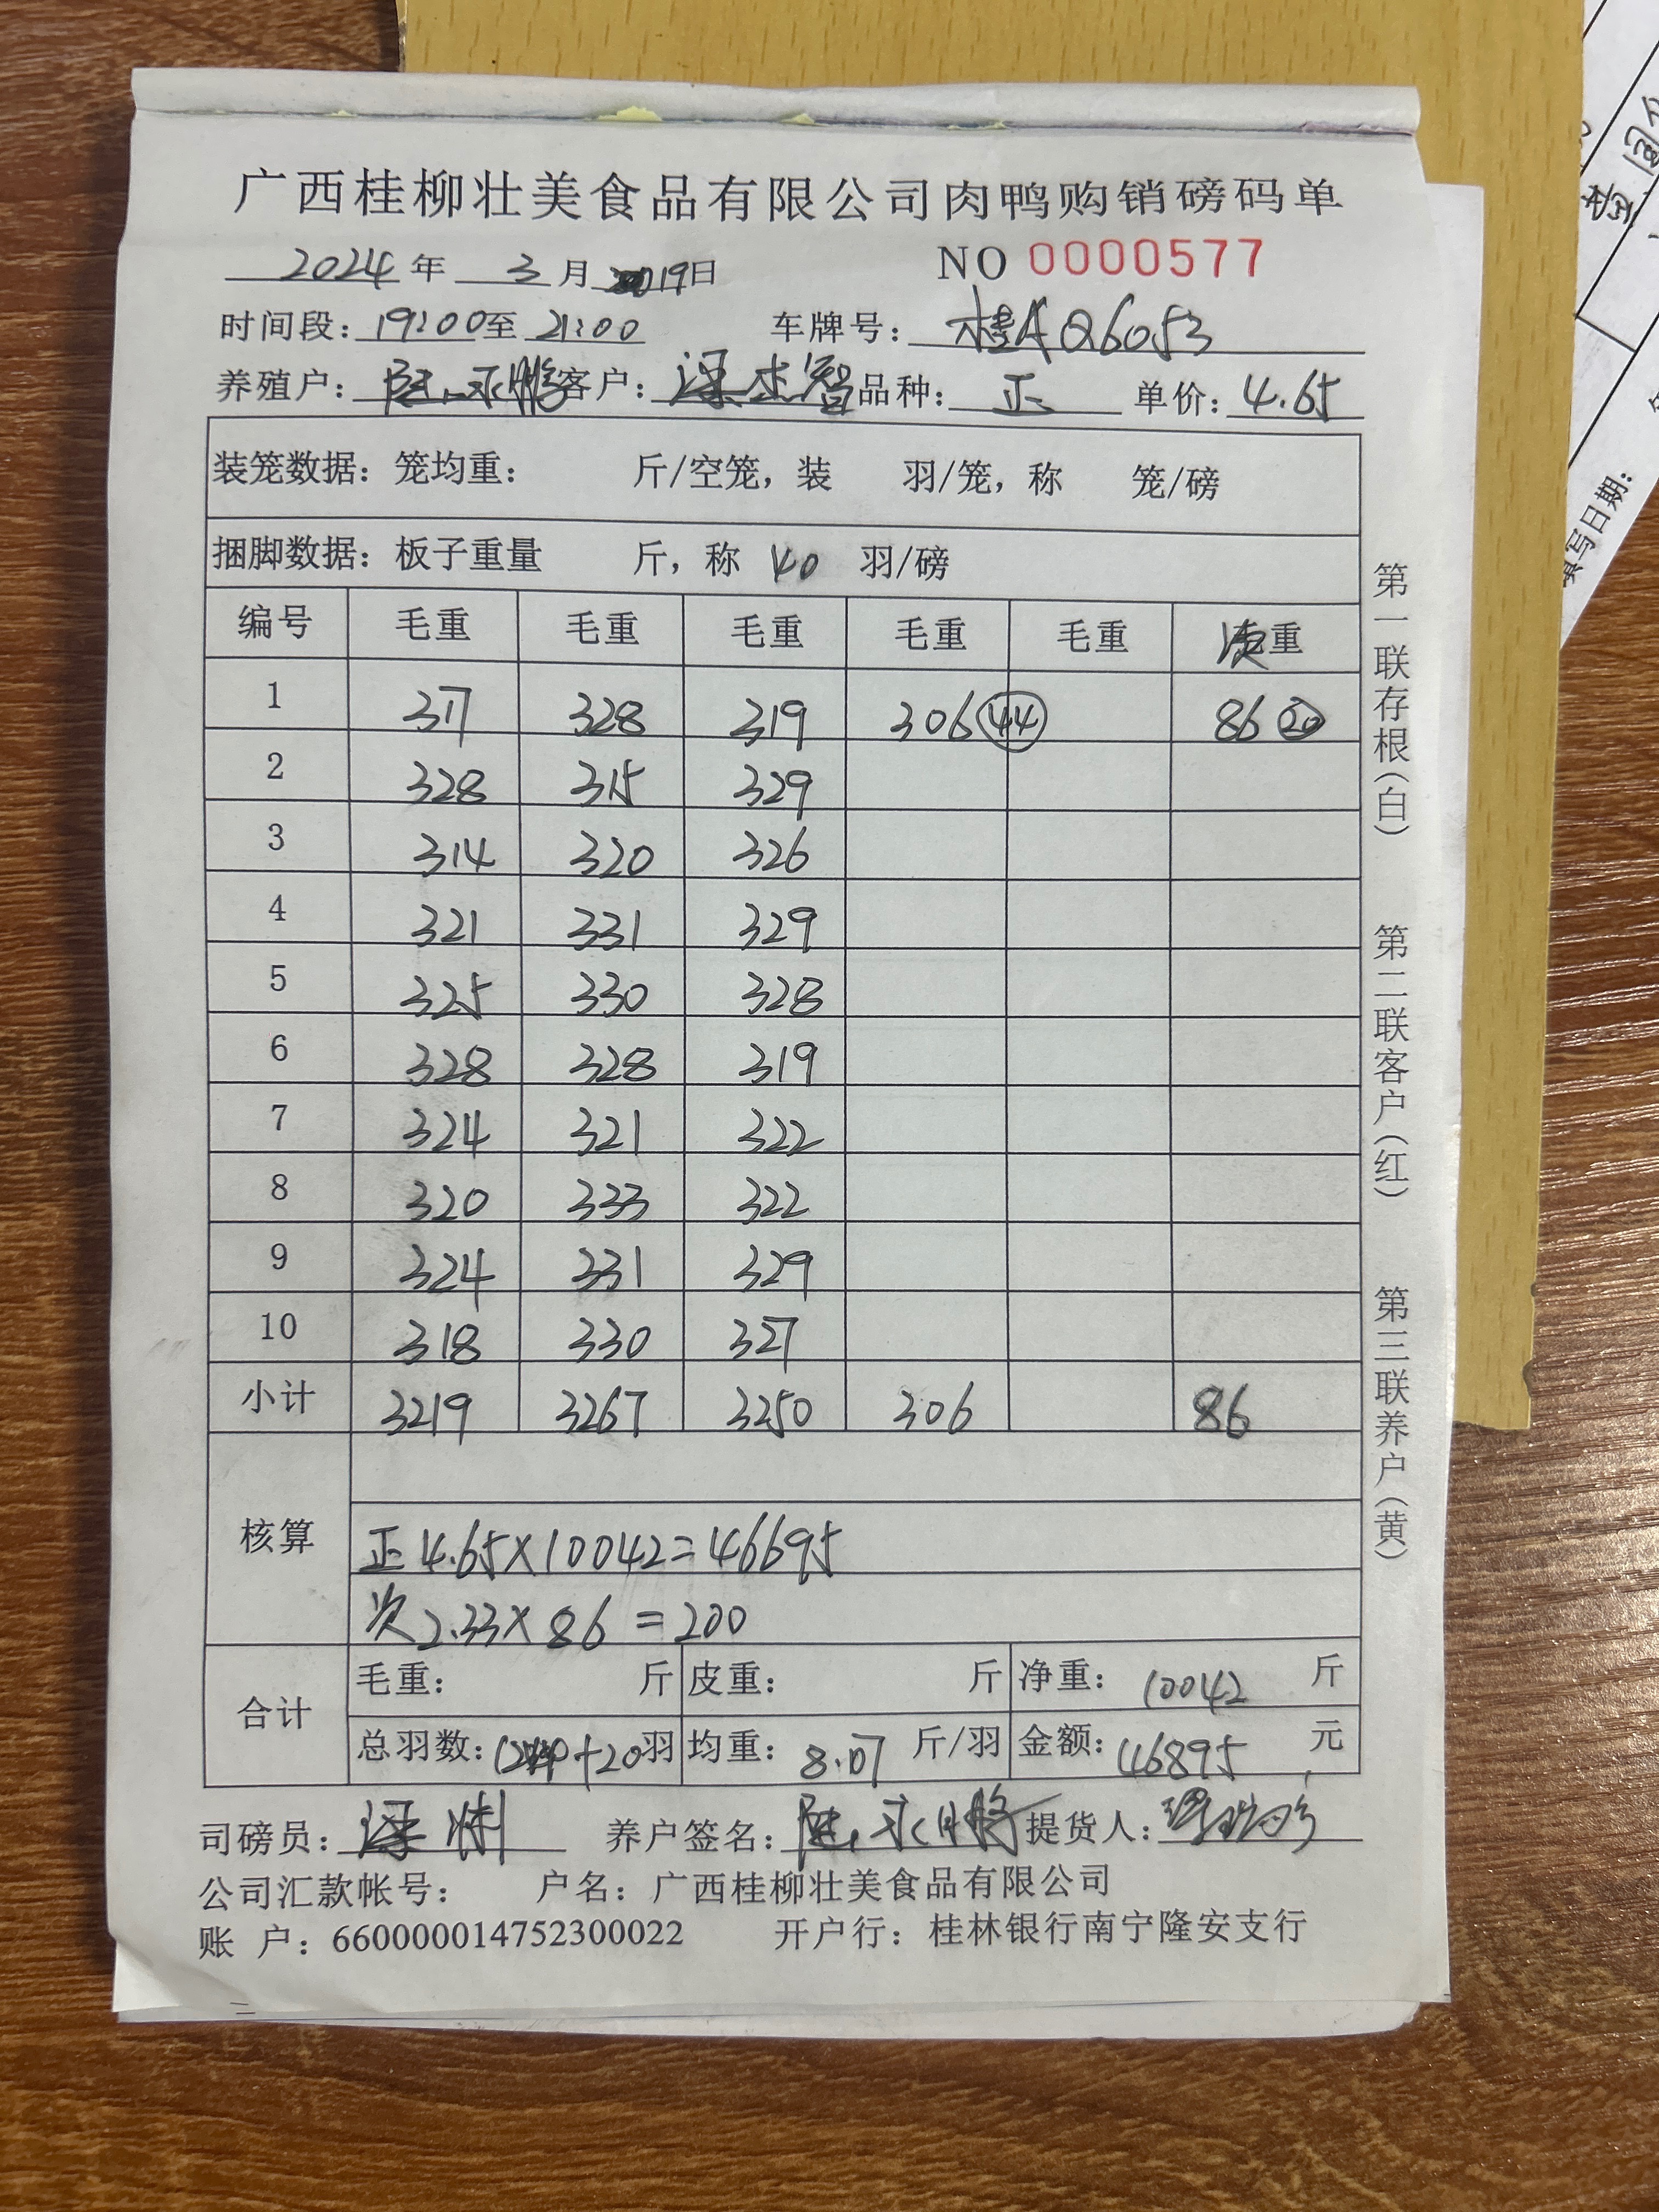 广西桂柳壮美食品有限公司肉鸭购销磅码单
2024年 3月 19日 NO 0000577
时间段：19:00至 21:00 车牌号：桂AQ6053
养殖户： 客户：梁 智 品种：正 单价：4.65
装笼数据：笼均重： 斤/空笼，装 羽/笼，称 笼/磅
捆脚数据：板子重量 斤，称 40 羽/磅
编号 毛重 毛重 毛重 毛重 毛重 次重
1 317 328 319 306 ㊹ 86 ⑳
2 328 315 329
3 314 320 326
4 321 331 329
5 325 330 328
6 328 328 319
7 324 321 322
8 320 333 322
9 324 331 329
10 318 330 327
小计 3219 3267 3250 306 86
核算
正 4.65×10042=46695
次 2.33×86=200
合计 毛重： 斤 皮重： 斤 净重：10042 斤
总羽数： +20羽 均重：8.07 斤/羽 金额：46895 元
司磅员：梁 养户签名： 提货人：
公司汇款帐号： 户名：广西桂柳壮美食品有限公司
账 户：660000014752300022 开户行：桂林银行南宁隆安支行
第一联存根(白) 第二联客户(红) 第三联养户(黄)
填写日期：